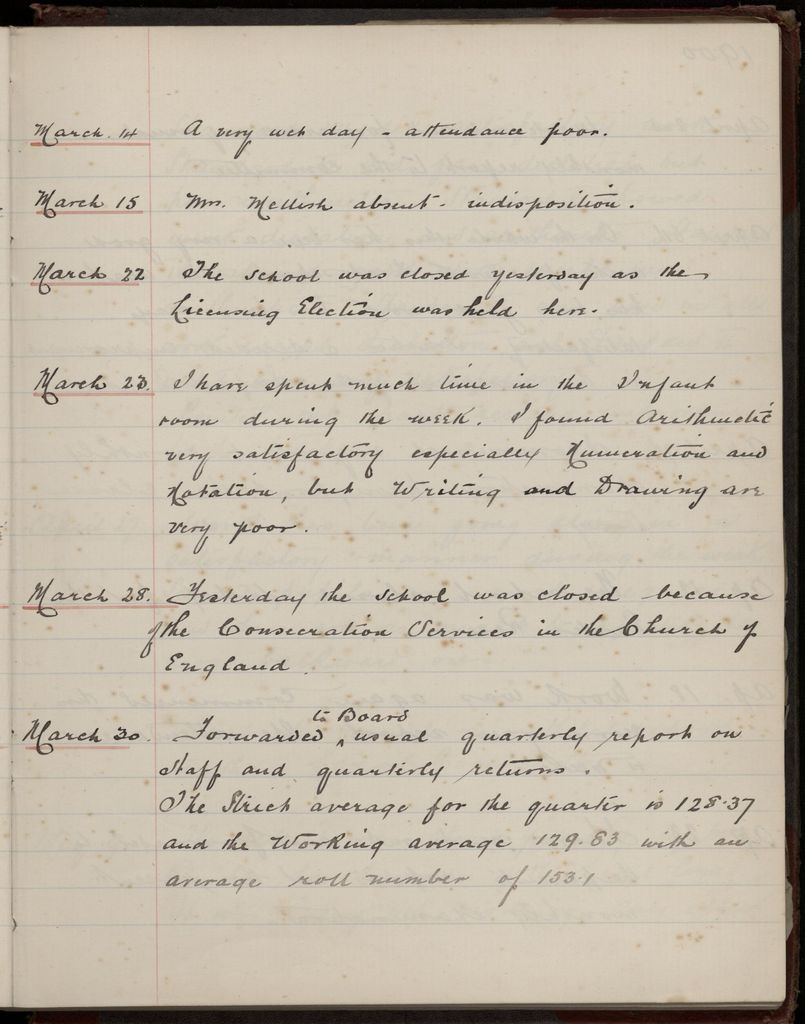 March 14 A very wet day - attendance poor.
March 15 Mrs. Mellish absent - indisposition.
March 22 The school was closed yesterday as the
Licensing Election was held here.
March 23. I have spent much time in the Infant
room during the week. I found Arithmetic
very satisfactory especially Numeration and
Notation, but Writing and Drawing are
very poor.
March 28. Yesterday the school was closed because
of the Consecration Services in the Church of
England.
March 30. Forwarded to Board usual quarterly report on
Staff and quarterly returns.
The Strict average for the quarter is 128.37
and the Working average 129.63 with an
average roll number of 153.1